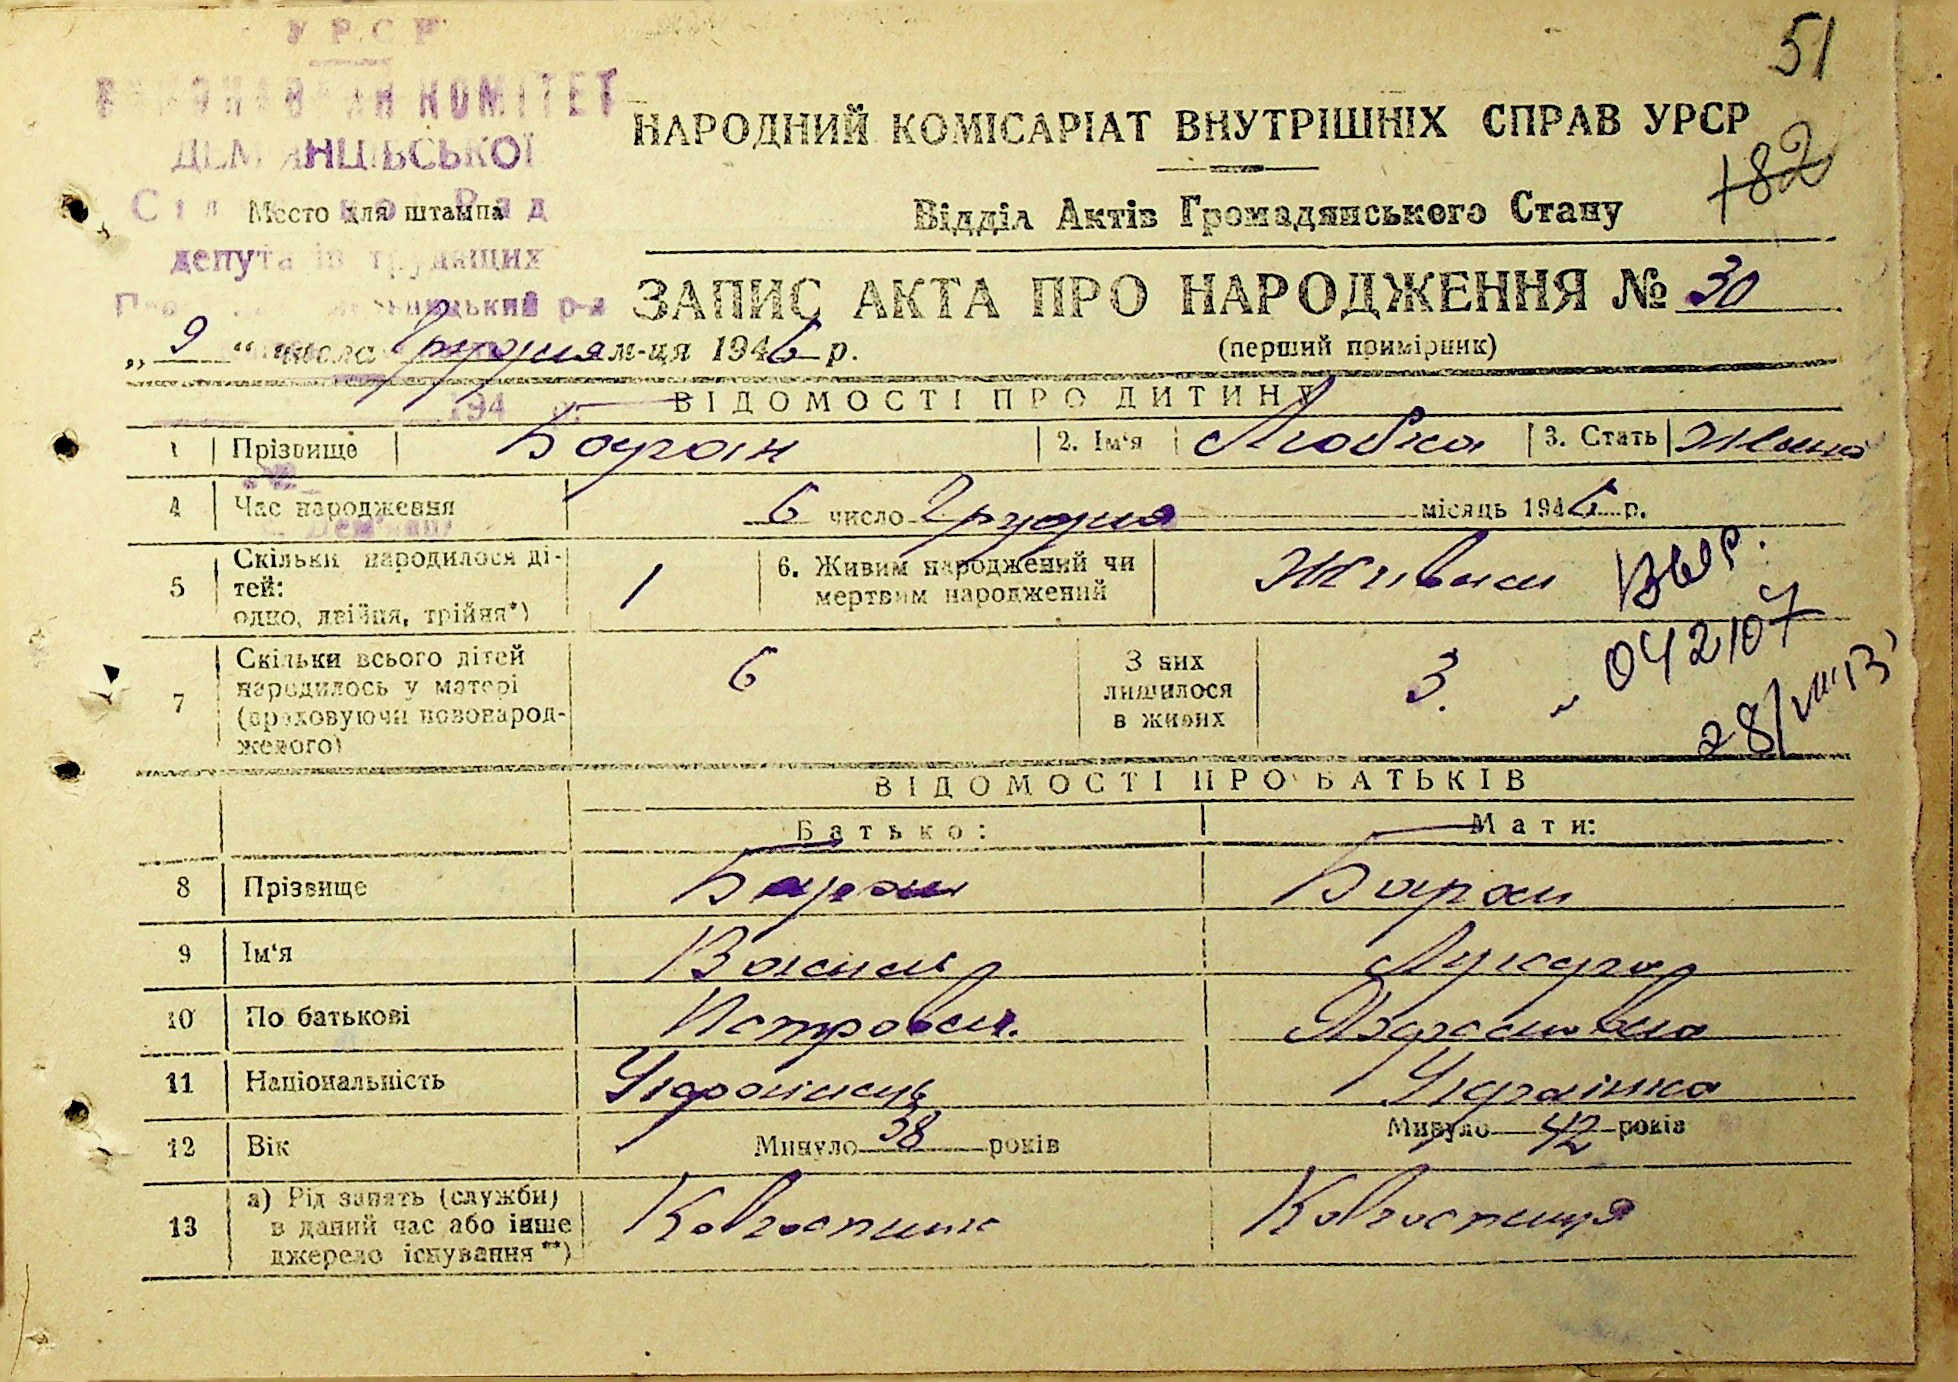 51
УРСР
КОМІТЕТ
НАРОДНИЙ КОМІСАРІАТ ВНУТРІШНІХ СПРАВ УРСР
182
Место для штампа
Відділ Актів Громадянського Стану
депутатів трудящих
ЗАПИС АКТА ПРО НАРОДЖЕННЯ № 30
„ 9 “ числа Грудня м-ця 1946 р.
(перший примірник)
194
ВІДОМОСТІ ПРО ДИТИНУ
1 Прізвище Баран 2. Ім'я Любка 3. Стать Жіноча
4 Час народження 6 число Грудня місяць 1946 р.
5 Скільки народилося дітей: одно, двійця, трійця*) 1 6. Живим народжений чи мертвим народжений Живим
7 Скільки всього дітей народилось у матері (враховуючи новонародженого) 6 З них лишилося в живих 3.
042107
28/VIII 13
ВІДОМОСТІ ПРО БАТЬКІВ
Батько: Мати:
8 Прізвище Баран Баран
9 Ім'я Василь
10 По батькові Петрович
11 Національність Українець Українка
12 Вік Минуло 38 років Минуло 42 років
13 а) Рід занять (служби) в даний час або інше джерело існування**) Колгоспник Колгоспниця